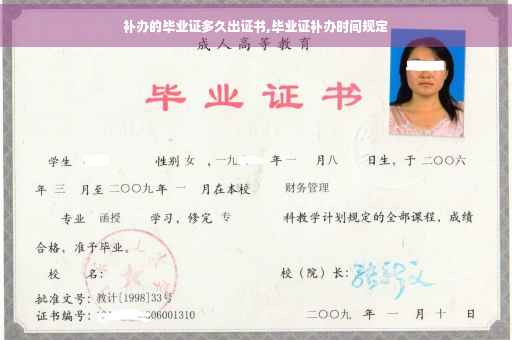 补办的毕业证多久出证书,毕业证补办时间规定
成人高等教育
毕业证书
学生 性别 女 ,一九 年 一 月八 日生，于二〇〇六
年 三 月至二〇〇九年 一 月在本校 财务管理
专业 函授 学习，修完 专 科教学计划规定的全部课程，成绩
合格，准予毕业。
校 名： 校（院）长：
批准文号：教计[1998]33号
证书编号： 06001310 二〇〇九 年 一 月 十 日